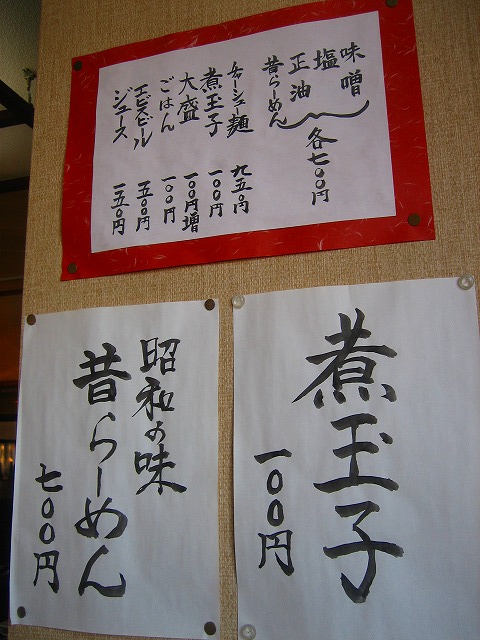 味噌
塩
正油
昔らーめん
各七〇〇円
チャーシュー麺 九五〇円
煮玉子 一〇〇円
大盛 一〇〇円増
ごはん 一〇〇円
ヱビスビール 五〇〇円
ジュース 一五〇円
煮玉子
一〇〇円
昭和の味
昔らーめん
七〇〇円